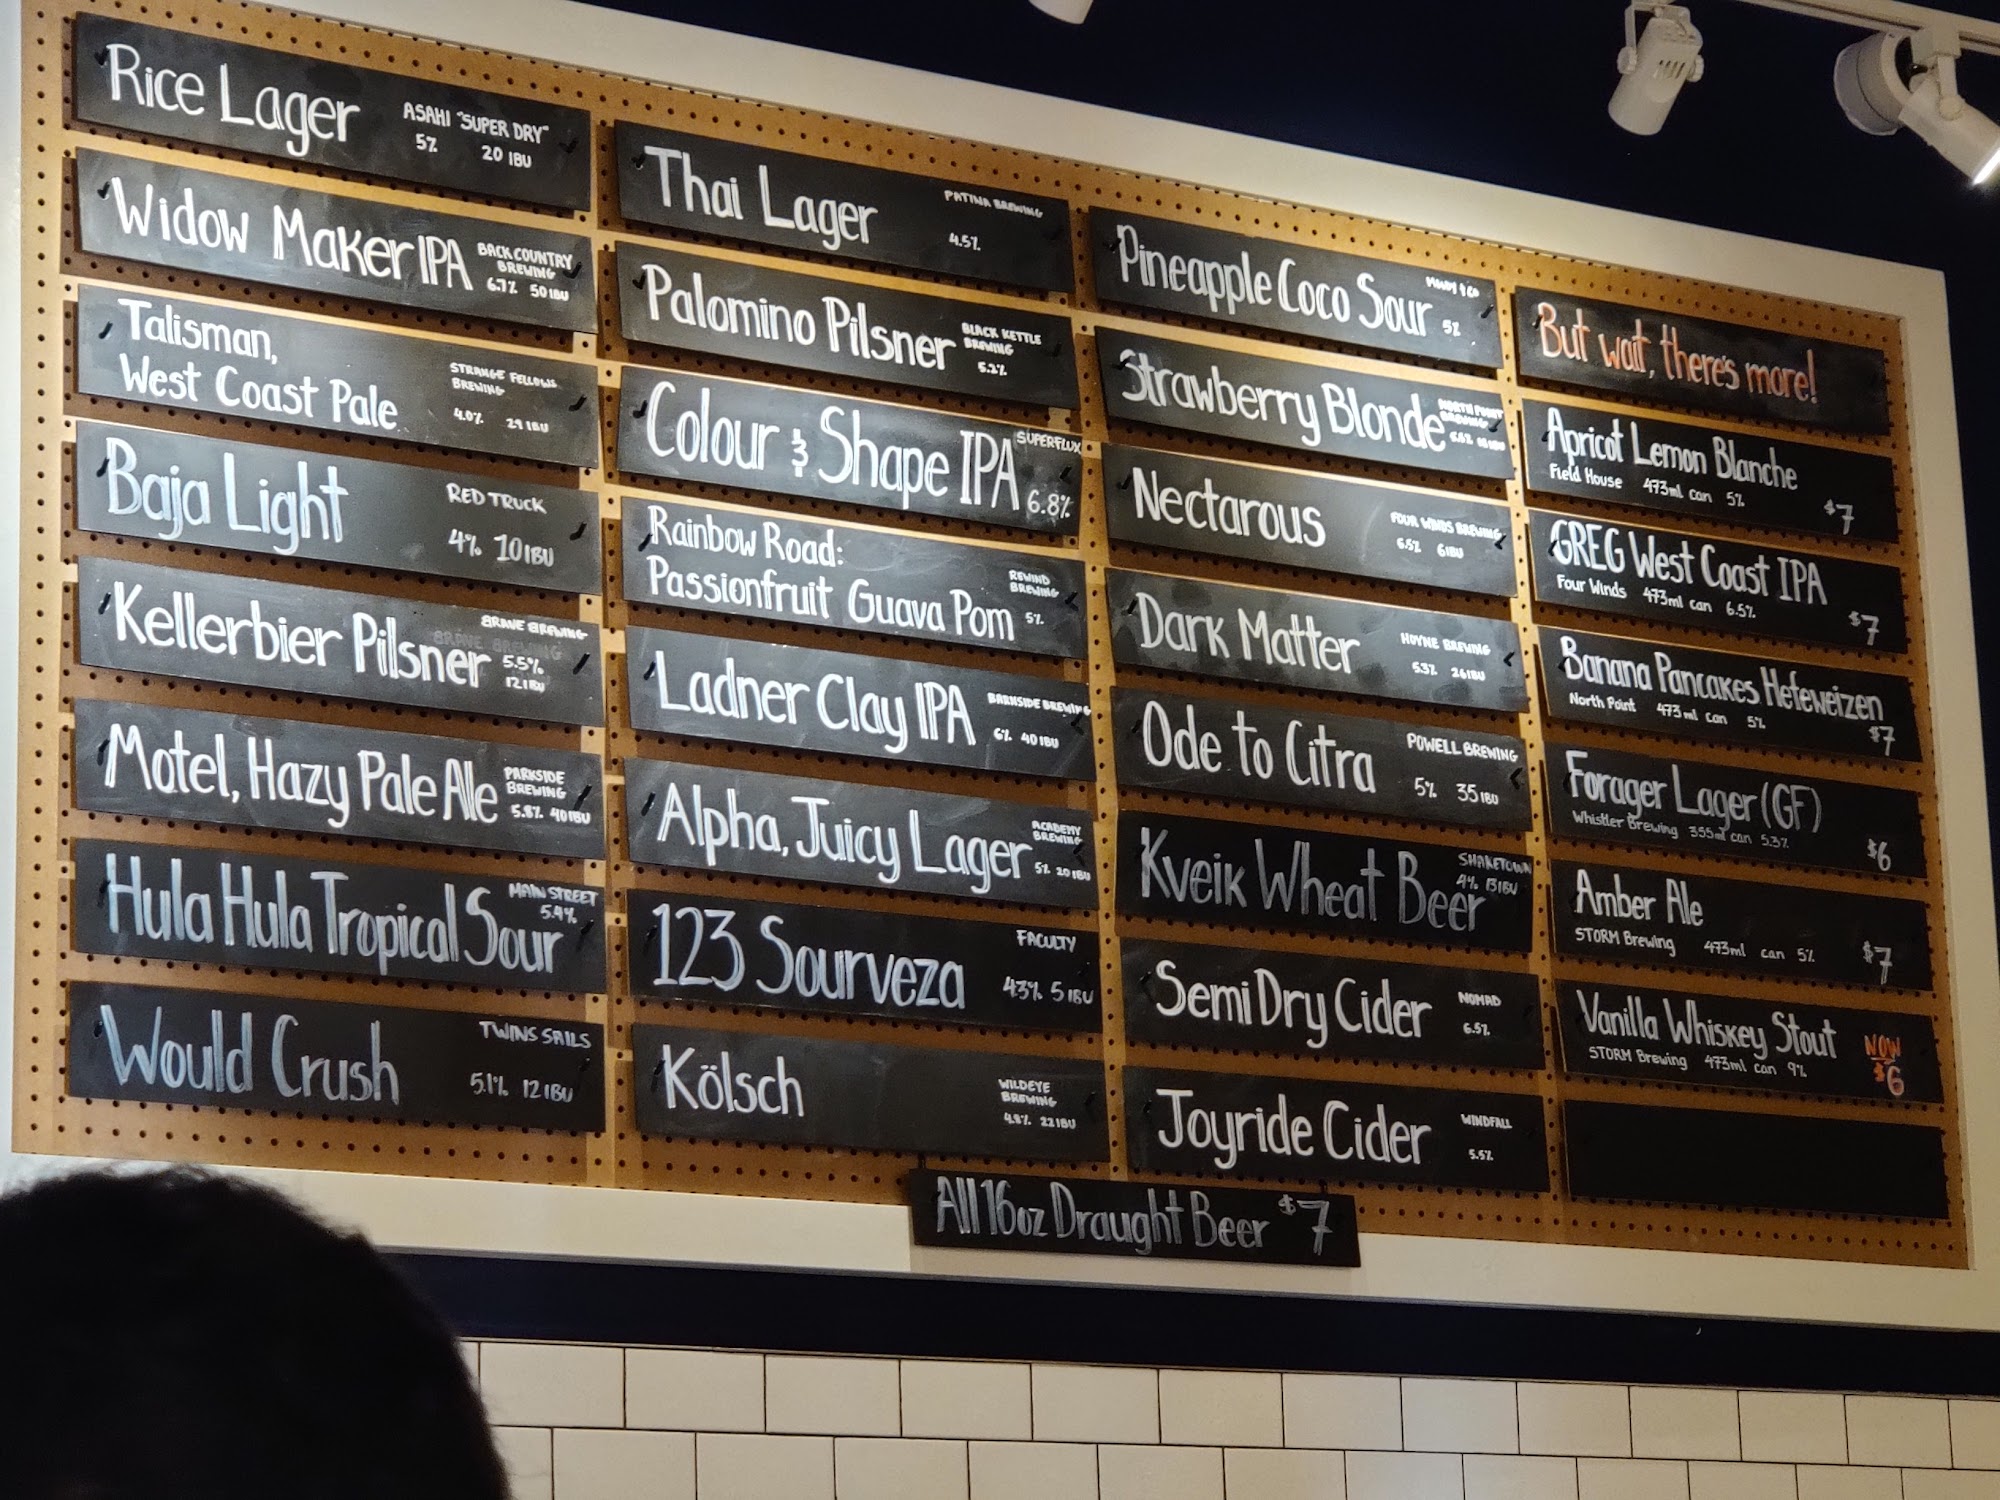 Rice Lager
ASAHI "SUPER DRY"
5% 20 IBU
Widow Maker IPA
BACK COUNTRY
BREWING
6.7% 50 IBU
Talisman,
West Coast Pale
STRANGE FELLOWS
BREWING
4.0% 29 IBU
Baja Light
RED TRUCK
4% 10 IBU
Kellerbier Pilsner
BRAVE BREWING
5.5%
12 IBU
Motel, Hazy Pale Ale
PARKSIDE
BREWING
5.8% 40 IBU
Hula Hula Tropical Sour
MAIN STREET
5.4%
Would Crush
TWINS SAILS
5.1% 12 IBU
Thai Lager
PATINA BREWING
4.5%
Palomino Pilsner
BLACK KETTLE
BREWING
5.2%
Colour & Shape IPA
SUPERFLUX
6.8%
Rainbow Road:
Passionfruit Guava Pom
REWIND
BREWING
5%
Ladner Clay IPA
BARNSIDE BREWING
6% 40 IBU
Alpha, Juicy Lager
ACADEMY
BREWING
5% 20 IBU
123 Sourveza
FACULTY
4.3% 5 IBU
Kölsch
WILDEYE
BREWING
4.8% 22 IBU
All 16oz Draught Beer $7
Pineapple Coco Sour
5%
Strawberry Blonde
NORTH POINT
BREWING
Nectarous
FOUR WINDS BREWING
5.5% 6 IBU
Dark Matter
HOYNE BREWING
5.3% 26 IBU
Ode to Citra
POWELL BREWING
5% 35 IBU
Kveik Wheat Beer
SHAKETOWN
4% 13 IBU
Semi Dry Cider
NOMAD
6.5%
Joyride Cider
WINDFALL
5.5%
But wait, there's more!
Apricot Lemon Blanche
Field House 473ml can 5%
$7
GREG West Coast IPA
Four Winds 473ml can 6.5%
$7
Banana Pancakes Hefeweizen
North Point 473ml can 5%
$7
Forager Lager (GF)
Whistler Brewing 355ml can 5.3%
$6
Amber Ale
STORM Brewing 473ml can 5%
$7
Vanilla Whiskey Stout
STORM Brewing 473ml can 9%
NOW
$6